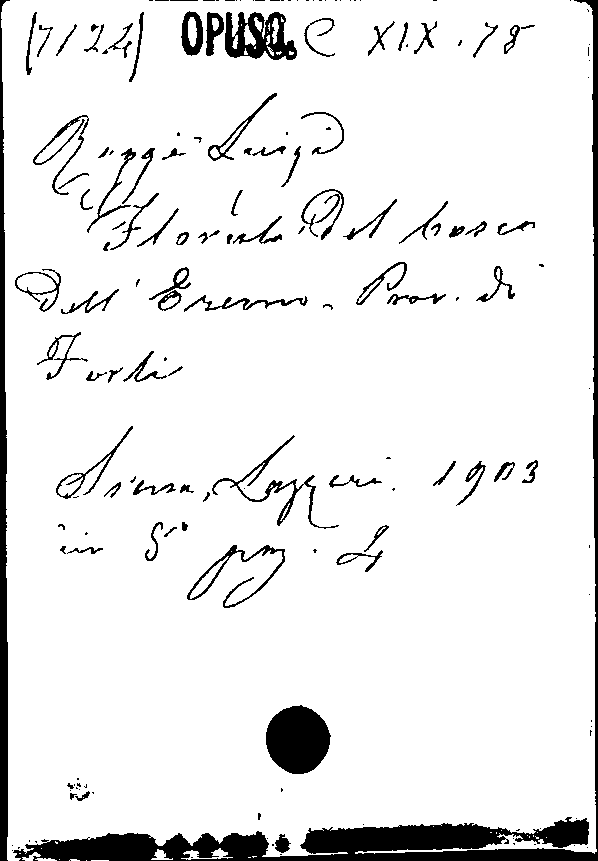 (7124) OPUSC. C XIX. 78
Luigi
Florula Del bosco
Dell' Eremo - Prov. di
Forli
Siena, Lazzeri. 1903
in 8° pag. 4